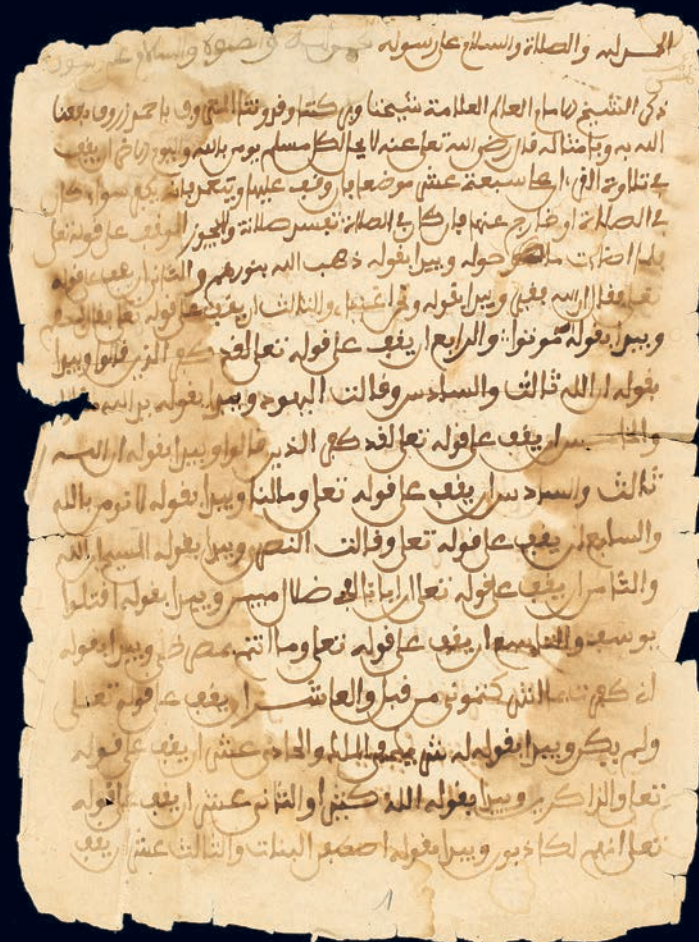 الحمد لله والصلاة والسلام على رسوله والصلاة والسلام على رسول
ذكر الشيخ الامام العالم العلامة شيخنا وبركتنا وقدوتنا احمد زروق نفعنا
الله به وبامثاله قال رضي الله تعلى عنه لا يحل لكل مسلم يومن بالله واليوم الاخر ان يقف
في تلاوة القرءان على سبعة عشر موضعا فان وقف عليها وتعمد بانه يكفر سواء كان
في الصلاة او خارج عنها فان كان في الصلاة تفسد صلاته ولا يجوز الوقف على قوله تعلى
فلما اضاءت ما حوله ويبدا بقوله ذهب الله بنورهم والثاني ان يقف على قوله
تعلى ان الله فقير ويبدا بقوله ونحن اغنياء والثالث ان يقف على قوله تعلى فقال لهم
ويبدا بقوله موتوا والرابع ان يقف على قوله تعلى لقد كفر الذين قالوا ويبدا
بقوله ان الله ثالث والسادس وقالت اليهود ويبدا بقوله يد الله
والخامس ان يقف على قوله تعلى لقد كفر الذين قالوا ويبدا بقوله ان الله
ثالث والسادس ان يقف على قوله تعلى ومالنا ويبدا بقوله لا نومن بالله
والسابع ان يقف على قوله تعلى وقالت النصرى ويبدا بقوله المسيح ابن الله
والثامن ان يقف على قوله تعلى ان ابانا لفي ضلال مبين ويبدا بقوله اقتلوا
يوسف والتاسع ان يقف على قوله تعلى وما انتم بمصرخي ويبدا بقوله
اني كفرت بما اشركتموني من قبل والعاشر ان يقف على قوله تعلى
ولم يكن ويبدا بقوله له شريك في الملك والحادي عشر ان يقف على قوله
تعلى والذاكرين ويبدا بقوله الله كثيرا والثاني عشر ان يقف على قوله
تعلى انهم لكاذبون ويبدا بقوله اصطفى البنات والثالث عشر ان يقف
1